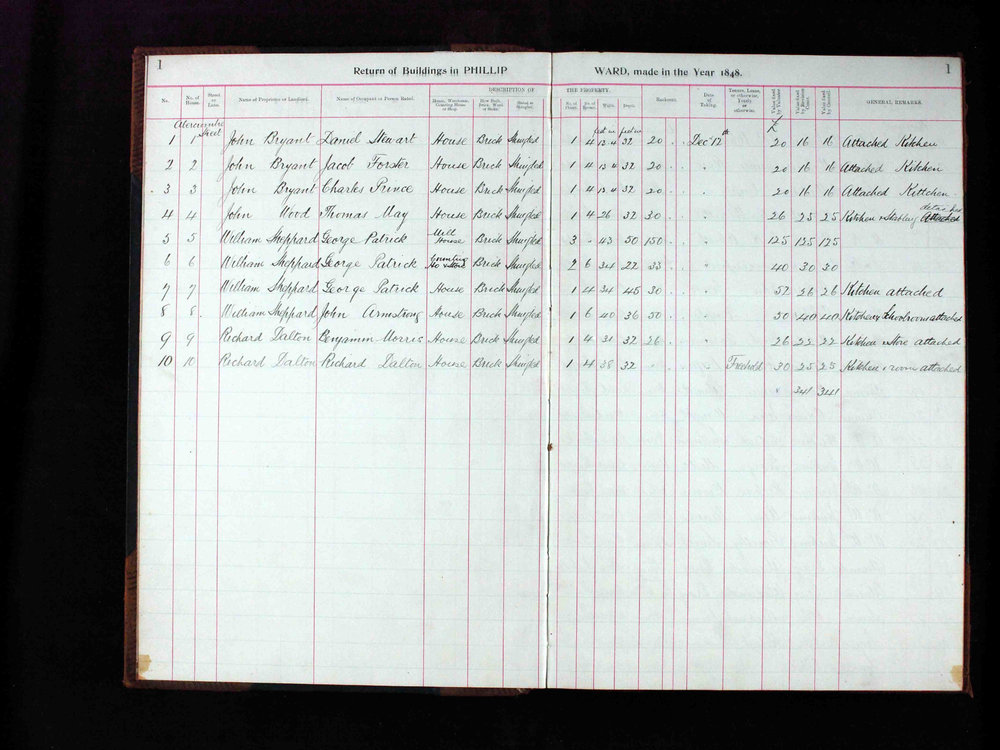 1
Return of Buildings in PHILLIP WARD, made in the Year 1848.
1
DESCRIPTION OF THE PROPERTY.
No. No. of House. Street or Lane. Name of Proprietor or Landlord. Name of Occupant or Person Rated. House, Warehouse, Counting House or Shop. How Built, Brick, Wood or Stone. Slated or Shingled. No. of Floors. No. of Rooms. Width. Depth. Rackrent. Date of Taking. Tenure, Lease, or otherwise, Yearly or otherwise. Value fixed by Valuator Value fixed by Revision Court Value fixed by Council GENERAL REMARKS.
Abercrombie Street feet in feet in £
1 1 John Bryant Daniel Stewart House Brick Shingled 1 4 13 4 32 20 Decr 12th 20 16 16 Attached Kitchen
2 2 John Bryant Jacob Forster House Brick Shingled 1 4 13 4 32 20 " 20 16 16 Attached Kitchen
3 3 John Bryant Charles Prince House Brick Shingled 1 4 13 4 32 20 " 20 16 16 Attached Kittchen
4 4 John Wood Thomas May House Brick Shingled 1 4 26 32 30 " 26 25 25 Kitchen & Stabling detached
5 5 William Sheppard George Patrick Mill House Brick Shingled 3 - 43 50 150 " 125 125 125
6 6 William Sheppard George Patrick Counting Ho & Store Brick Shingled 2 6 34 22 33 " 40 30 30
7 7 William Sheppard George Patrick House Brick Shingled 1 4 34 45 30 " 52 26 26 Kitchen attached
8 8 William Sheppard John Armstrong House Brick Shingled 1 6 40 36 50 " 50 40 40 Kitchen & Schoolroom attached
9 9 Richard Dalton Benjamin Morris House Brick Shingled 1 4 31 32 26 " 26 22 22 Kitchen & Store attached
10 10 Richard Dalton Richard Dalton House Brick Shingled 1 4 38 32 " " Freehold 30 25 25 Kitchen & room attached
341 341